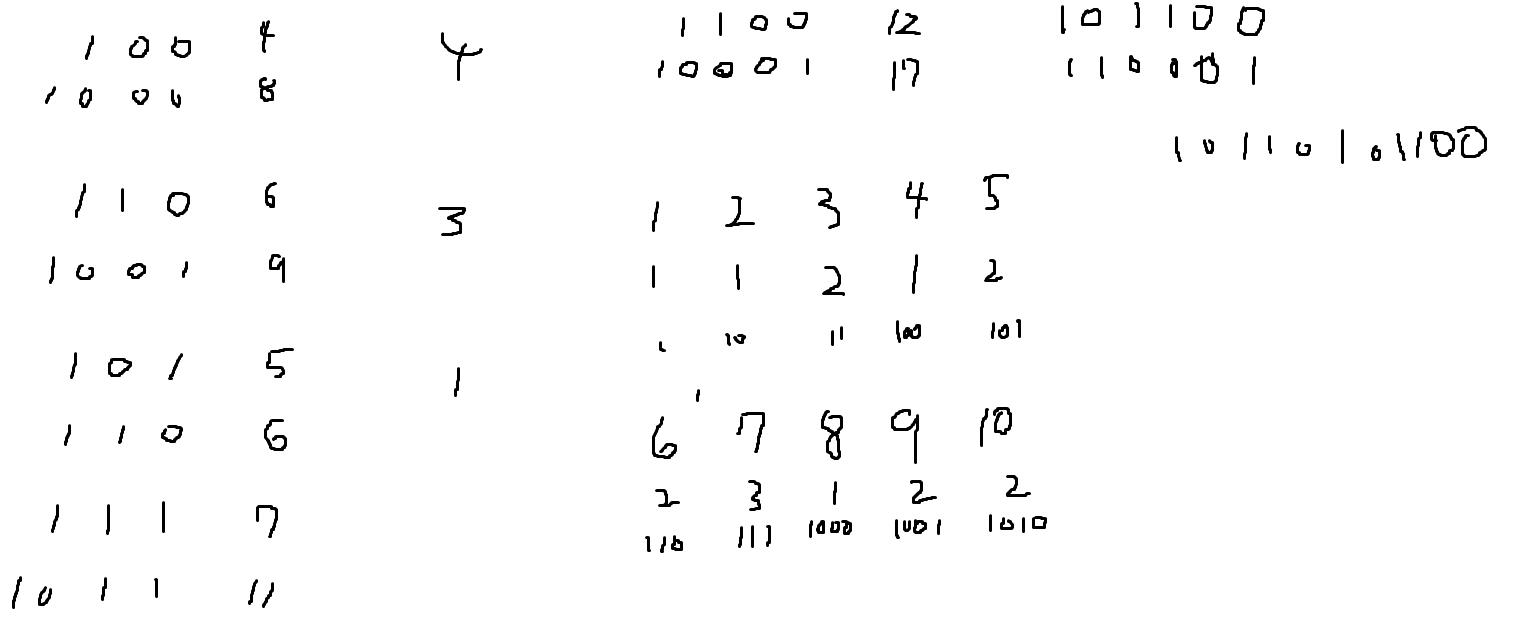 1 0 0 4 4
1 0 0 0 8
1 1 0 6 3
1 0 0 1 9
1 0 1 5 1
1 1 0 6
1 1 1 7
1 0 1 1 11
1 1 0 0 12
1 0 0 0 1 17
1 0 1 1 0 0
1 1 0 0 0 1
1 0 1 1 0 1 0 1 1 0 0
1 2 3 4 5
1 1 2 1 2
1 10 11 100 101
6 7 8 9 10
2 3 1 2 2
110 111 1000 1001 1010